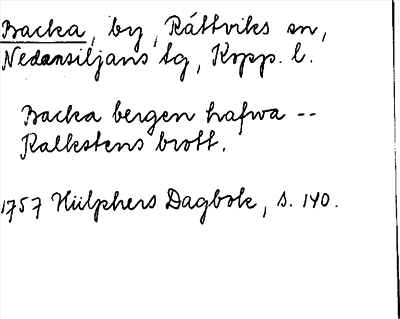 Backa, by, Rättviks sn,
Nedansiljans tg, Kopp. l.
Backa bergen hafwa --
Kalkstens brott.
1757 Hülphers Dagbok, s. 140.